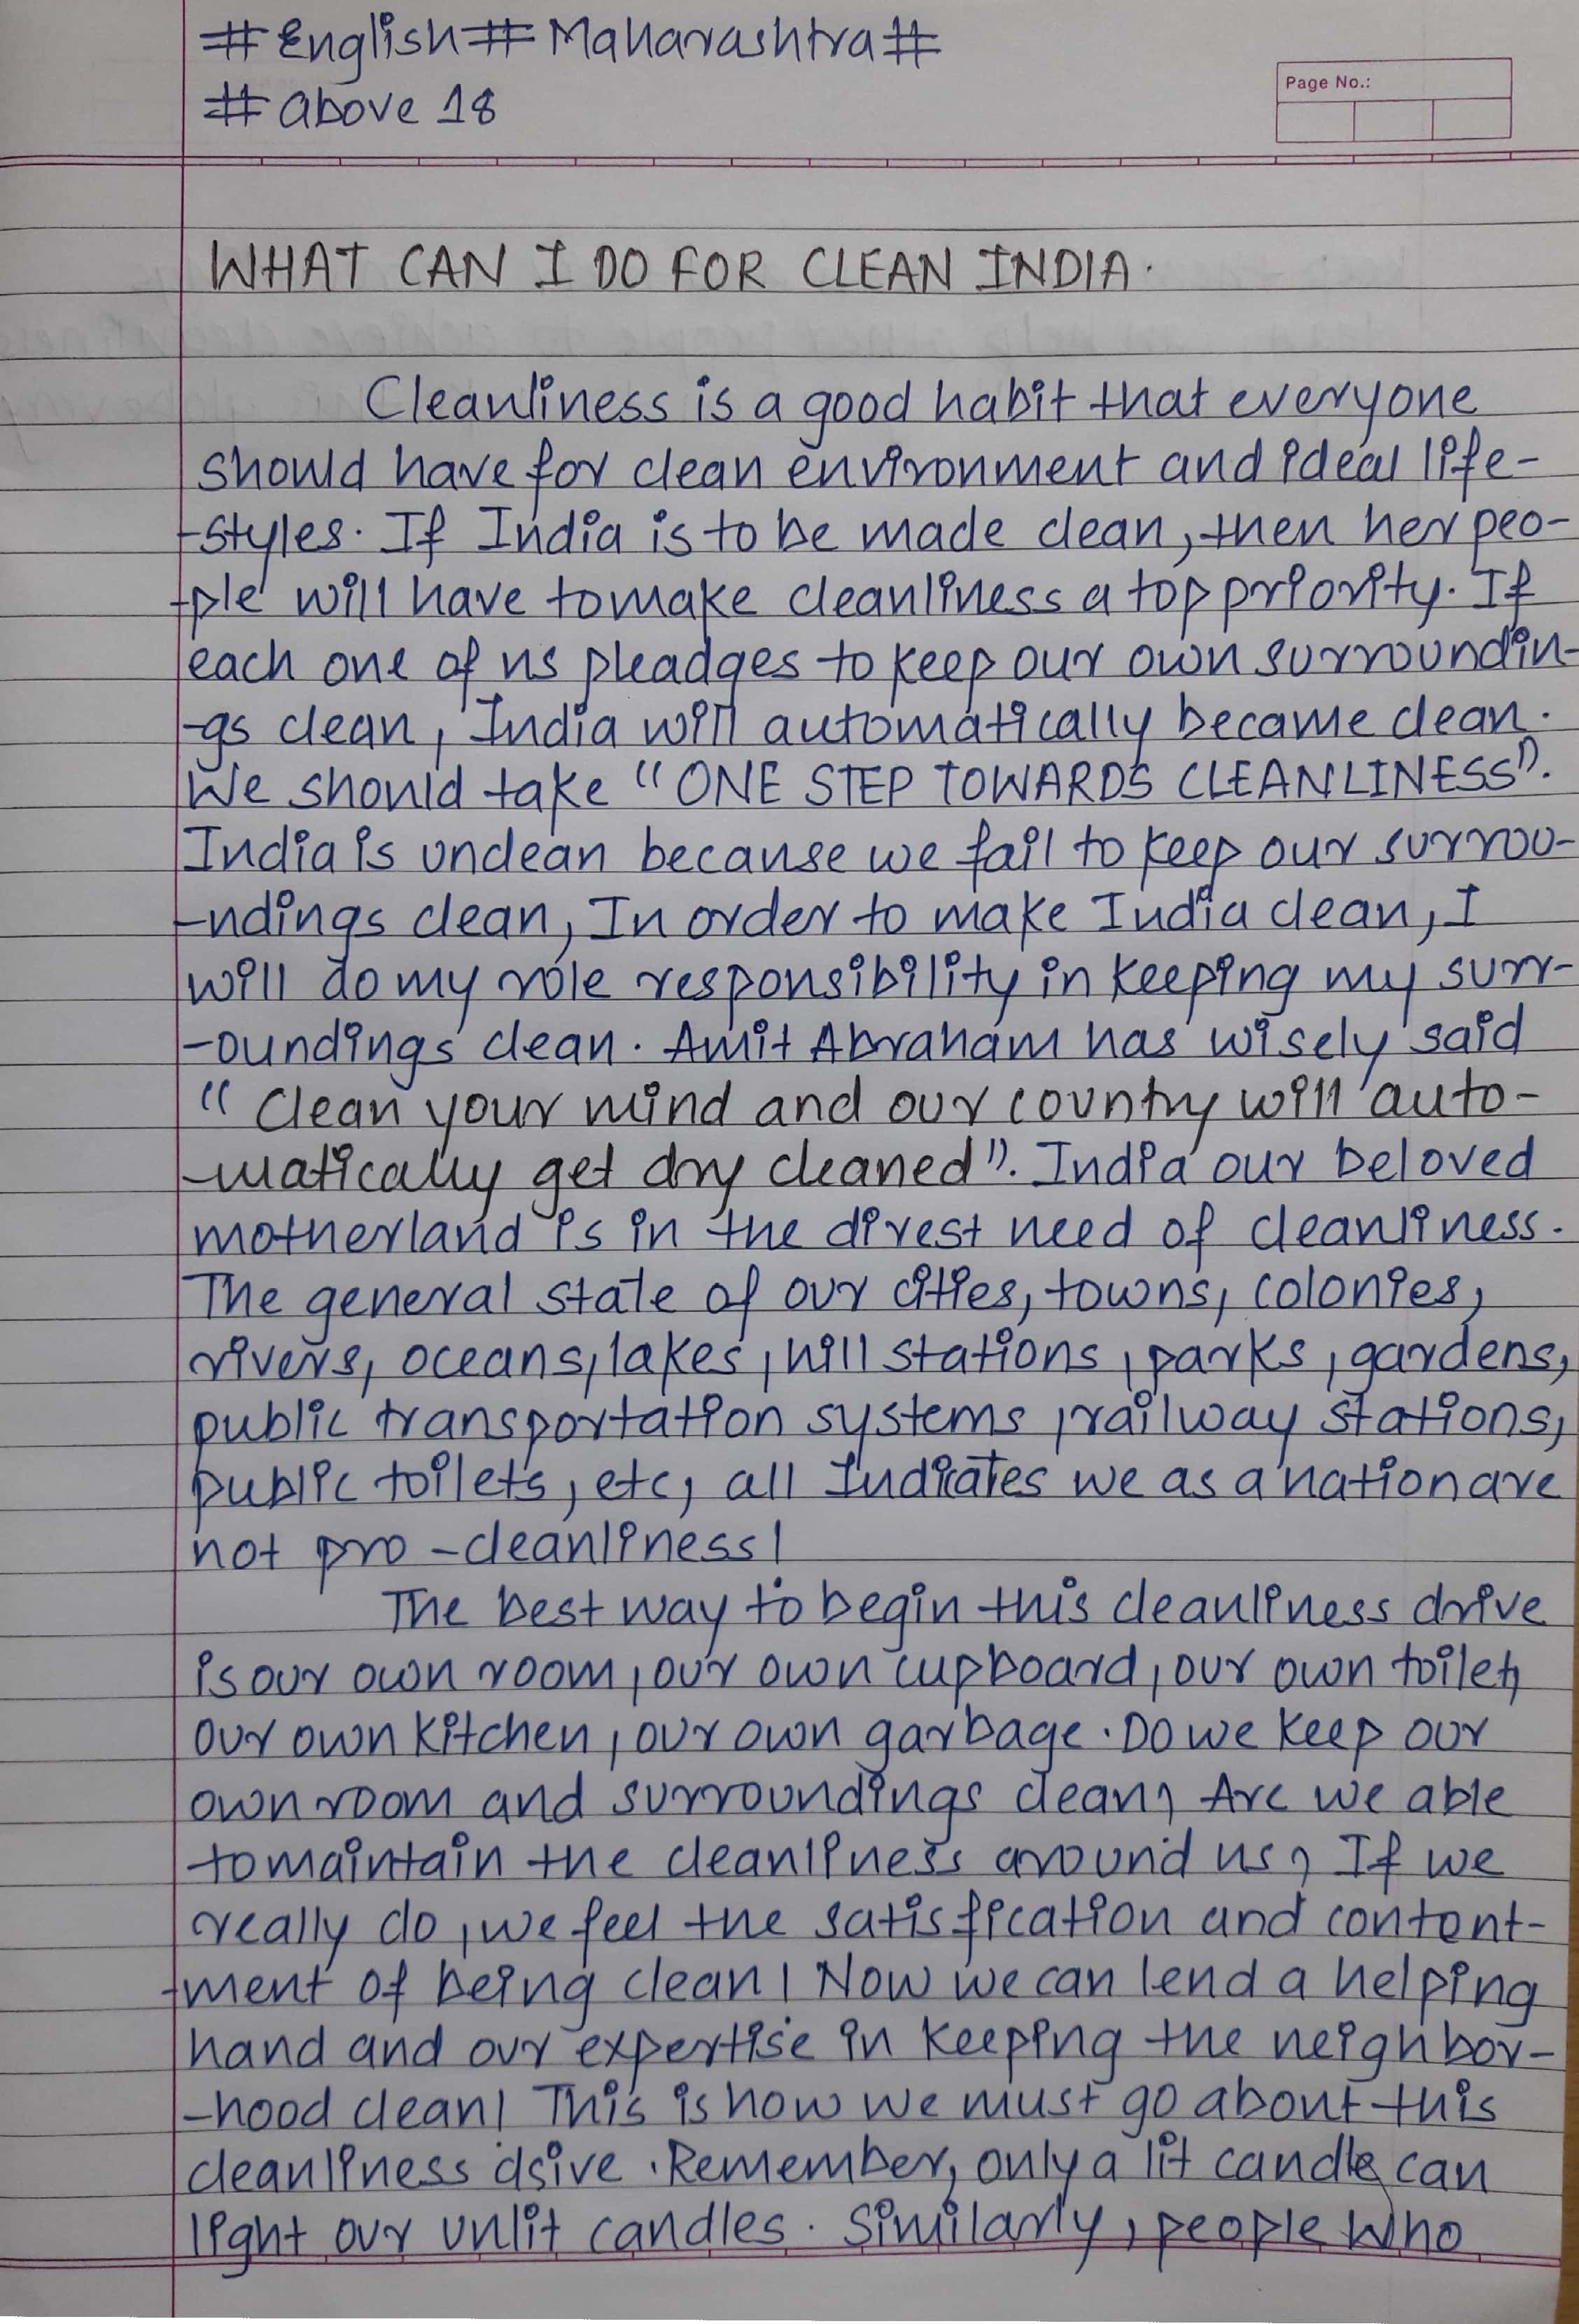 #English#Maharashtra#
#above 18
Page No.:
WHAT CAN I DO FOR CLEAN INDIA.
Cleanliness is a good habit that everyone
should have for clean environment and ideal life-
-styles. If India is to be made clean, then her peo-
-ple will have to make cleanliness a top priority. If
each one of us pleadges to keep our own surroundin-
-gs clean, India will automatically became clean.
We should take "ONE STEP TOWARDS CLEANLINESS".
India is unclean because we fail to keep our surrou-
-ndings clean, In order to make India clean, I
will do my role responsibility in keeping my surr-
-oundings clean. Amit Abraham has wisely said
"Clean your mind and our country will auto-
-matically get dry cleaned". India our beloved
motherland is in the direst need of cleanliness.
The general state of our cities, towns, colonies,
rivers, oceans, lakes, hill stations, parks, gardens,
public transportation systems, railway stations,
public toilets, etc, all Indicates we as a nation are
not pro-cleanliness!
The best way to begin this cleanliness drive
is our own room, our own cupboard, our own toilet,
our own kitchen, our own garbage. Do we keep our
own room and surroundings clean, Are we able
to maintain the cleanliness around us, If we
really do, we feel the satisfication and content-
-ment of being clean! Now we can lend a helping
hand and our expertise in keeping the neighbor-
-hood clean! This is how we must go about this
cleanliness dsive. Remember, only a lit candle can
light our unlit candles. Similarly, people who